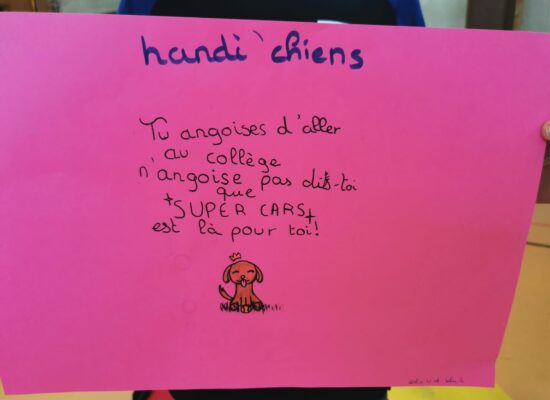 handi'chiens
Tu angoises d'aller
au collège
n'angoise pas dis-toi
que
+SUPER CARS+
est là pour toi!